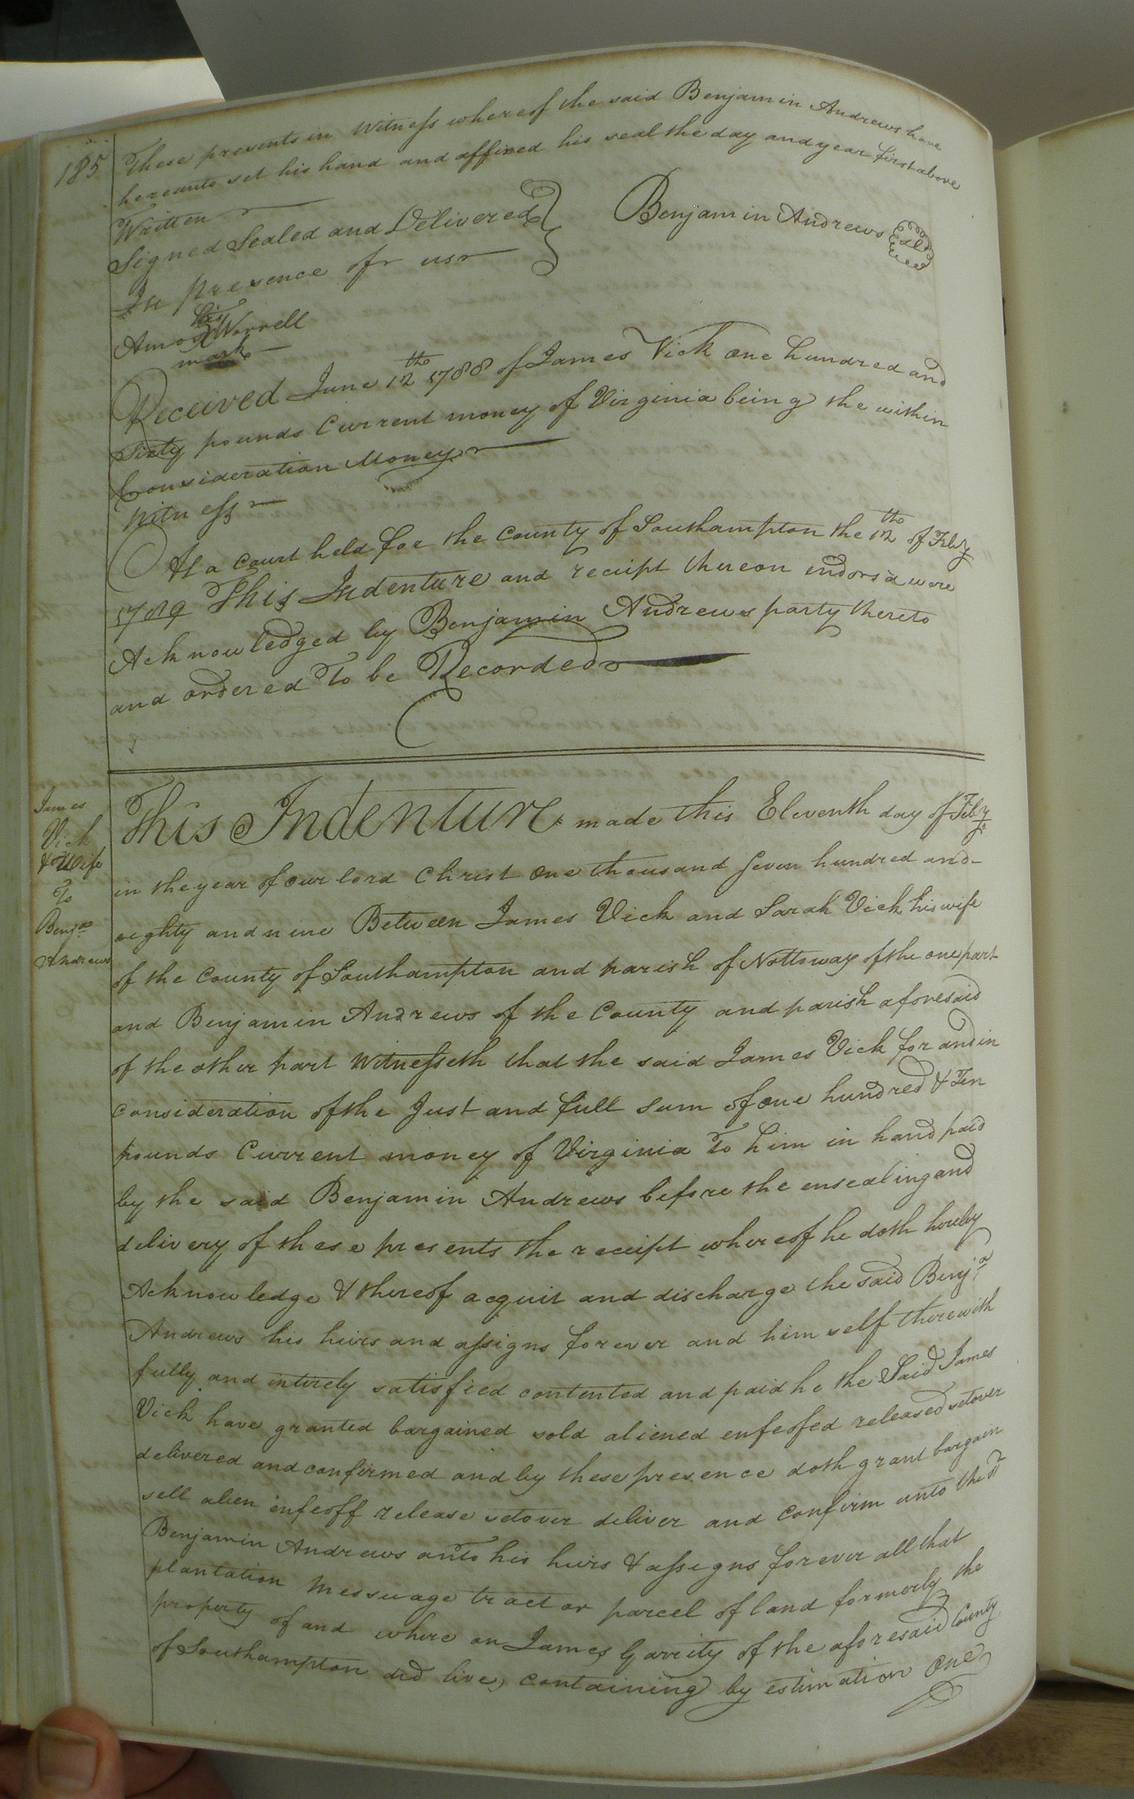 185
These presents in Witness whereof the said Benjamin Andrews have
hereunto set his hand and affixed his seal the day and year first above
Written
Signed Sealed and Delivered
In presence of us
Benjamin Andrews
his
Amos X Worrell
mark
Received June 12th 1788 of James Vick one hundred and
Sixty pounds Current money of Virginia being the within
Consideration Money
Witness
At a Court held for the County of Southampton the 12th of Feby
1789 This Indenture and receipt thereon indorsd were
Acknowledged by Benjamin Andrews party thereto
and ordered To be Recorded
James
Vick
& Wife
To
Benja
Andrews
This Indenture made this Eleventh day of Feby
in the year of our lord Christ One thousand Seven hundred and
eighty and nine Between James Vick and Sarah Vick his wife
of the County of Southampton and parish of Nottoway of the one part
and Benjamin Andrews of the County and parish aforesaid
of the other part Witnesseth that the said James Vick for and in
consideration of the Just and full Sum of one hundred & Ten
pounds Current money of Virginia To him in hand paid
by the said Benjamin Andrews before the ensealing and
delivery of these presents the receipt whereof he doth hereby
Acknowledge & thereof acquit and discharge the said Benja
Andrews his heirs and assigns forever and him self therewith
fully and intirely satisfied contented and paid he the Said James
Vick have granted bargained sold aliened enfeoffed released setover
delivered and confirmed and by these presence doth grant bargain
sell alien enfeoff release setover deliver and confirm unto the sd
Benjamin Andrews unto his heirs & assigns forever all that
plantation Messuage tract or parcel of land formerly the
property of and where on James Garrity of the aforesaid County
of Southampton did live, containing by estimation One